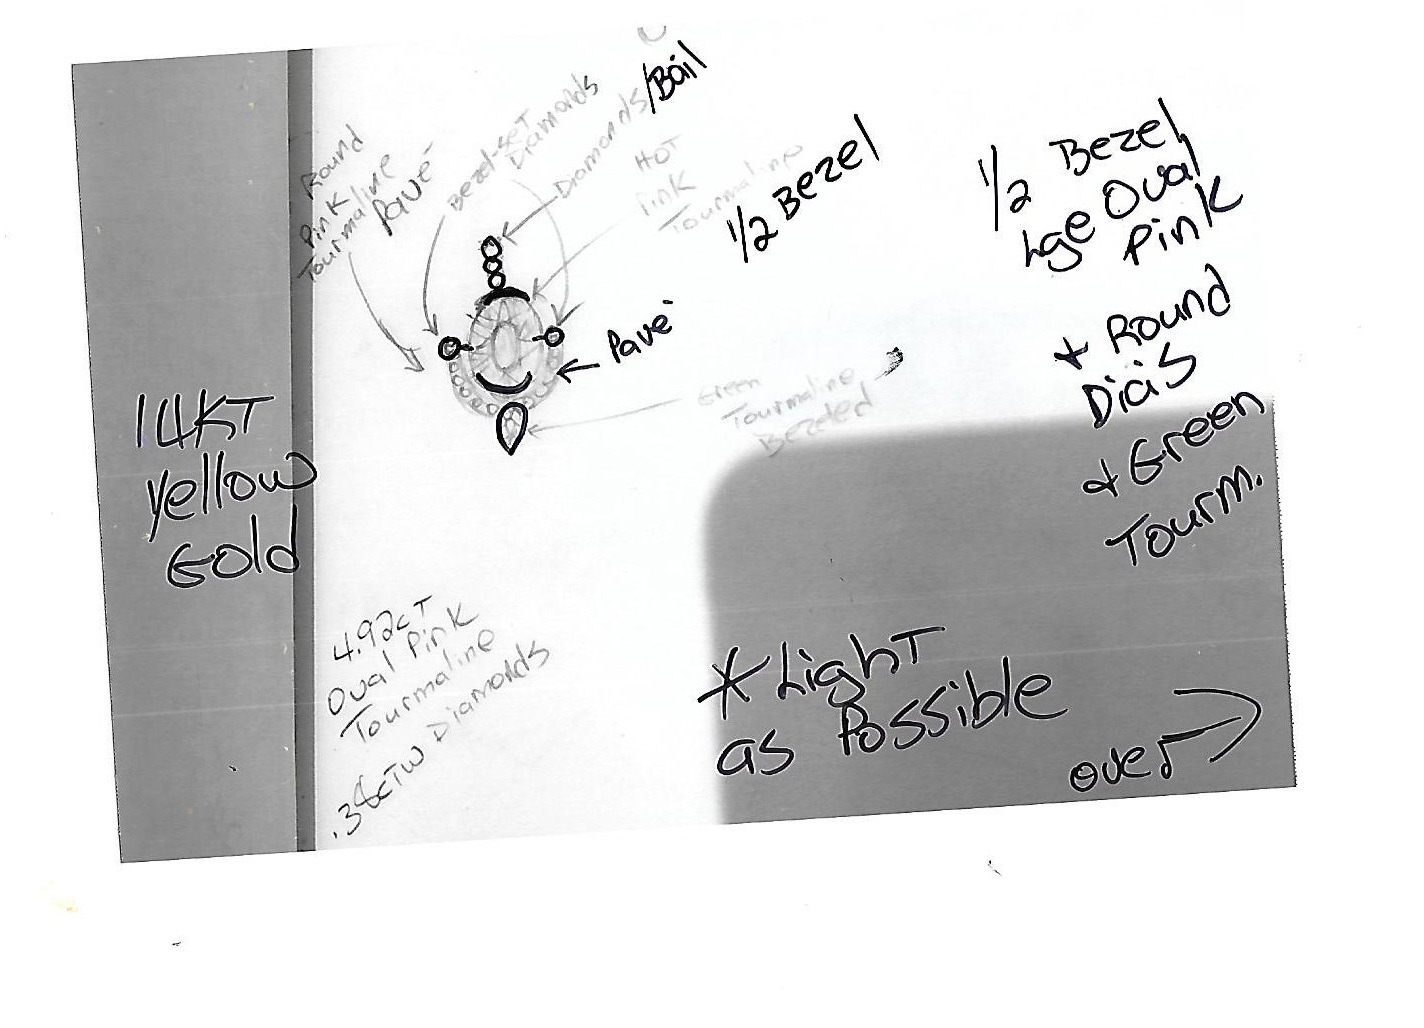 Round
Pink
Tourmaline
Pavé
Bezel-set
Diamonds
Diamonds/Bail
Hot
Pink
Tourmaline
1/2 Bezel
1/2 Bezel
Lge Oval
Pink
+ Round
Dia's
+ Green
Tourm.
Pavé
Green
Tourmaline
Bezeled
14KT
Yellow
Gold
4.92cT
Oval Pink
Tourmaline
.38cTW Diamonds
* Light
as Possible
over